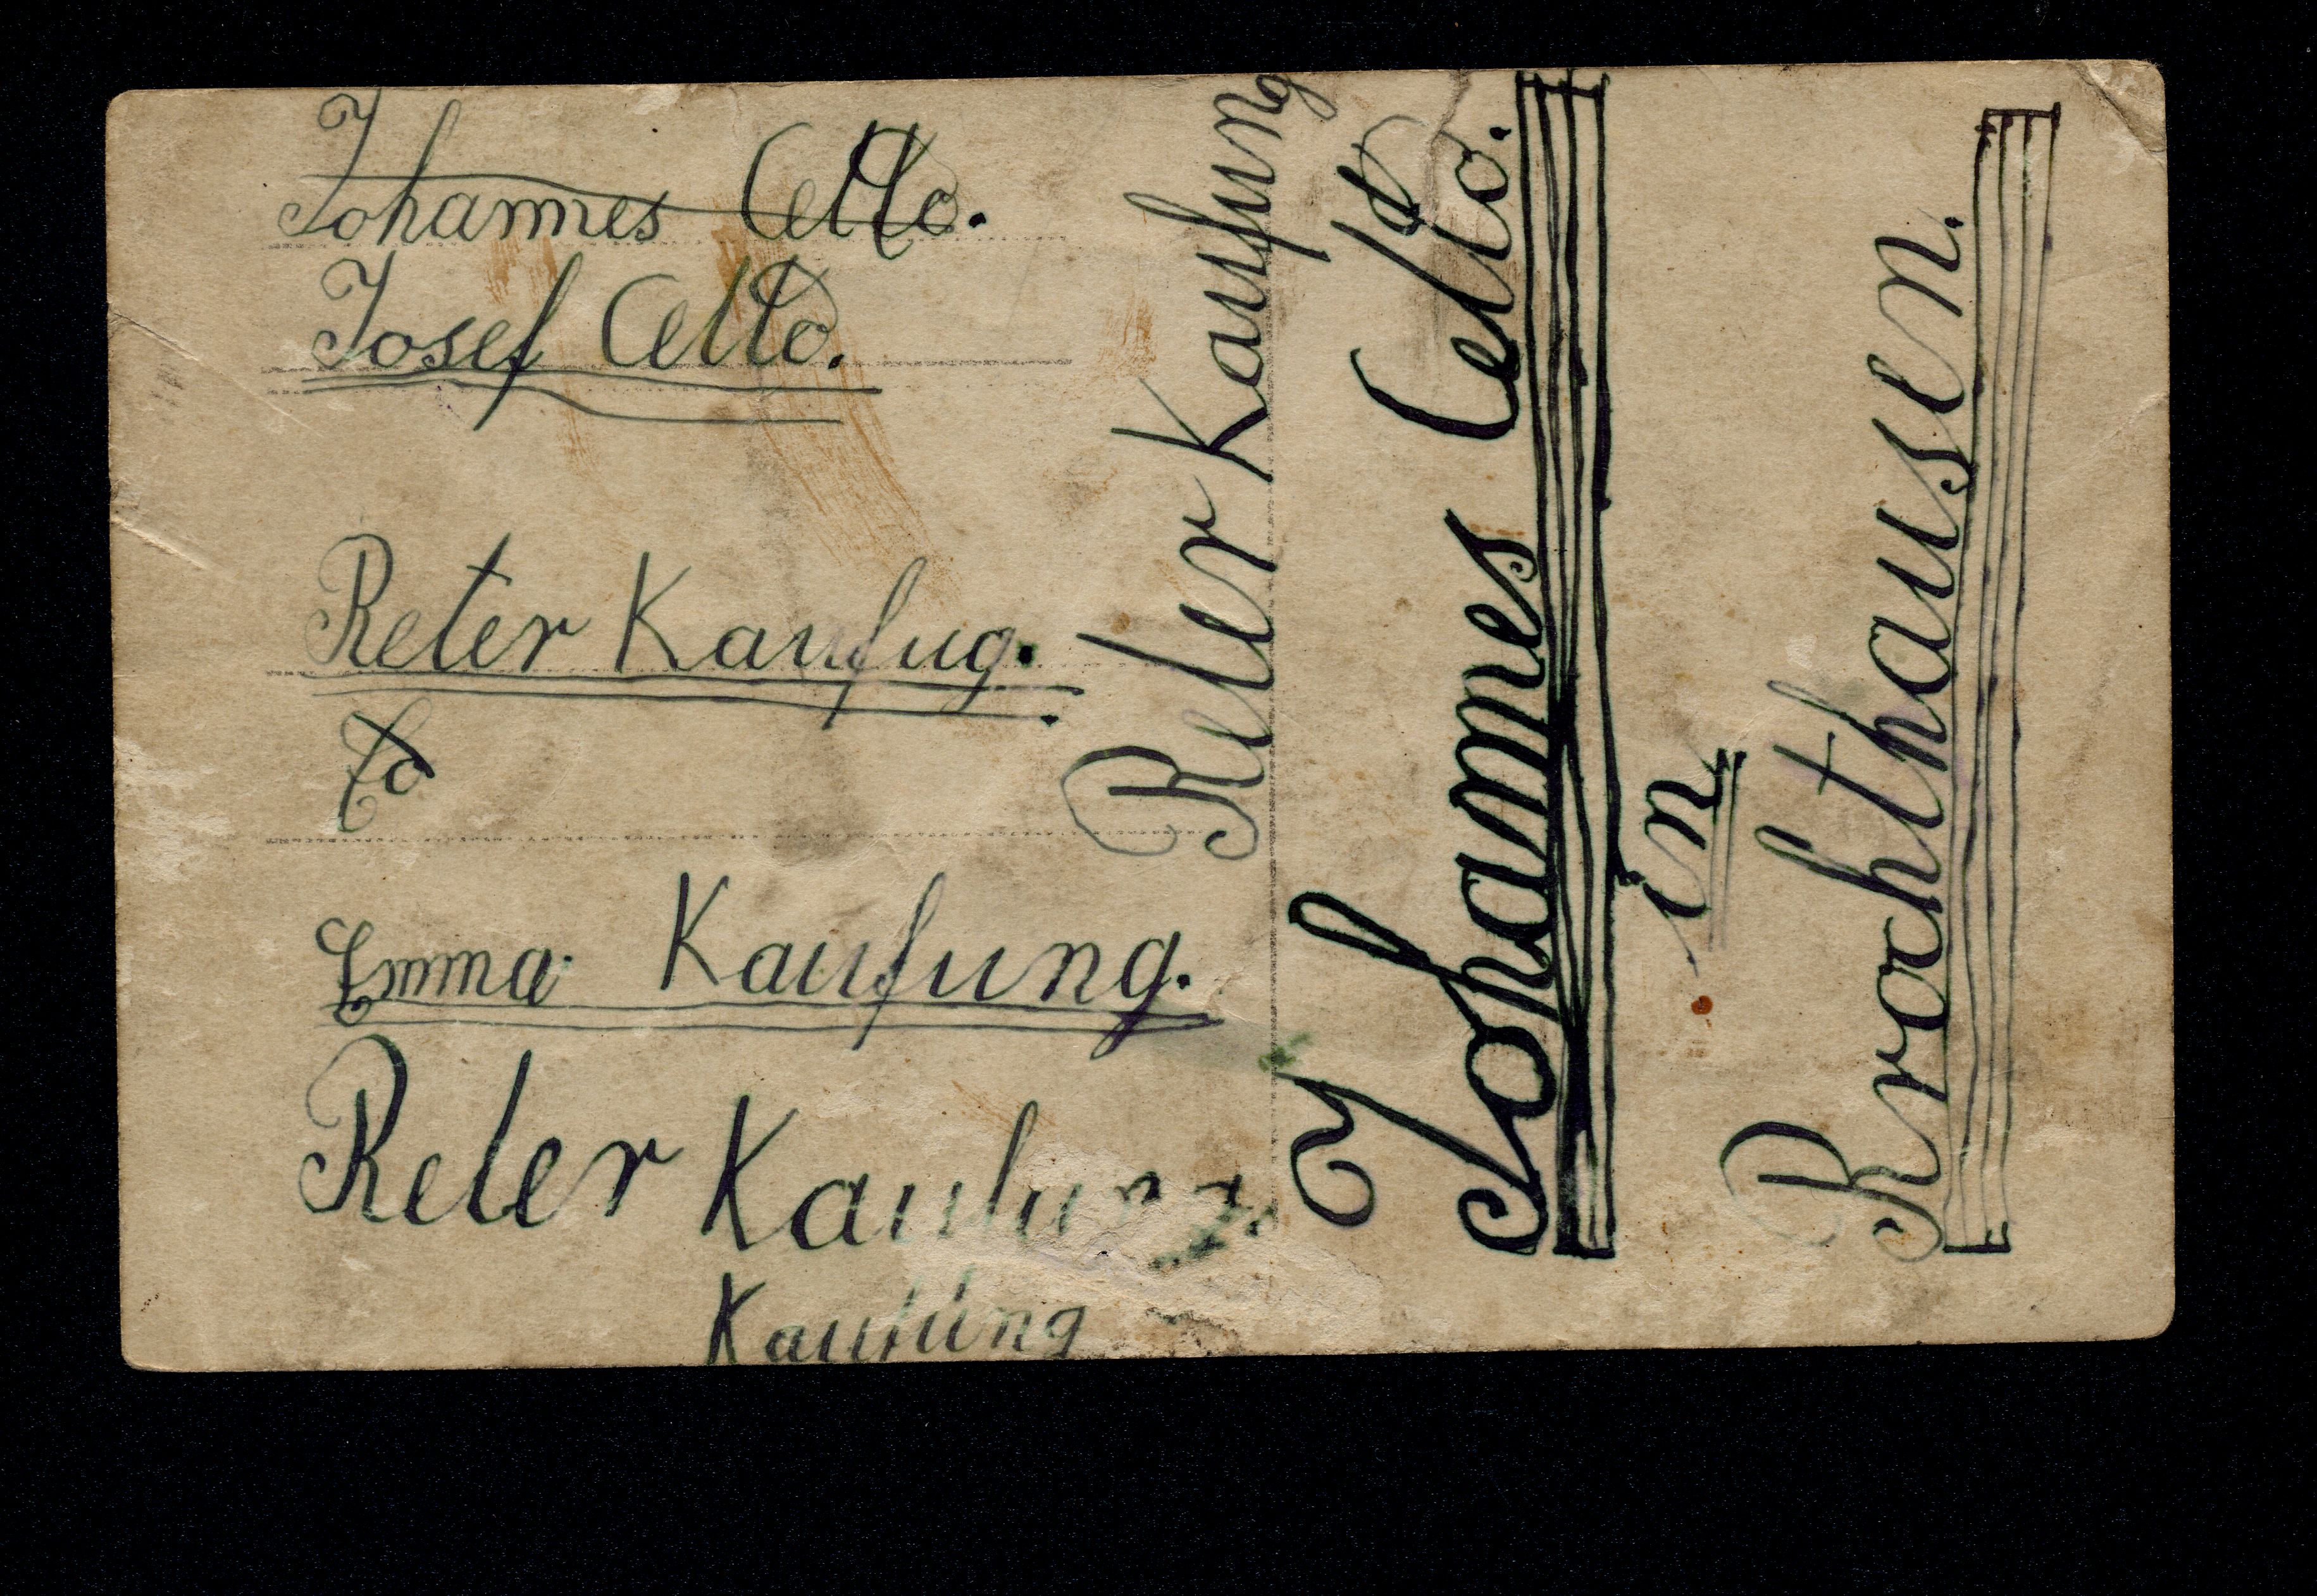 Johannes Cetto.
Josef Cetto.
Reter Kaufug.
Emma Kaufung.
Reter Kaufung
Kaufung
Reter Kaufung
Johannes Cetto.
in
Rrochthausen.